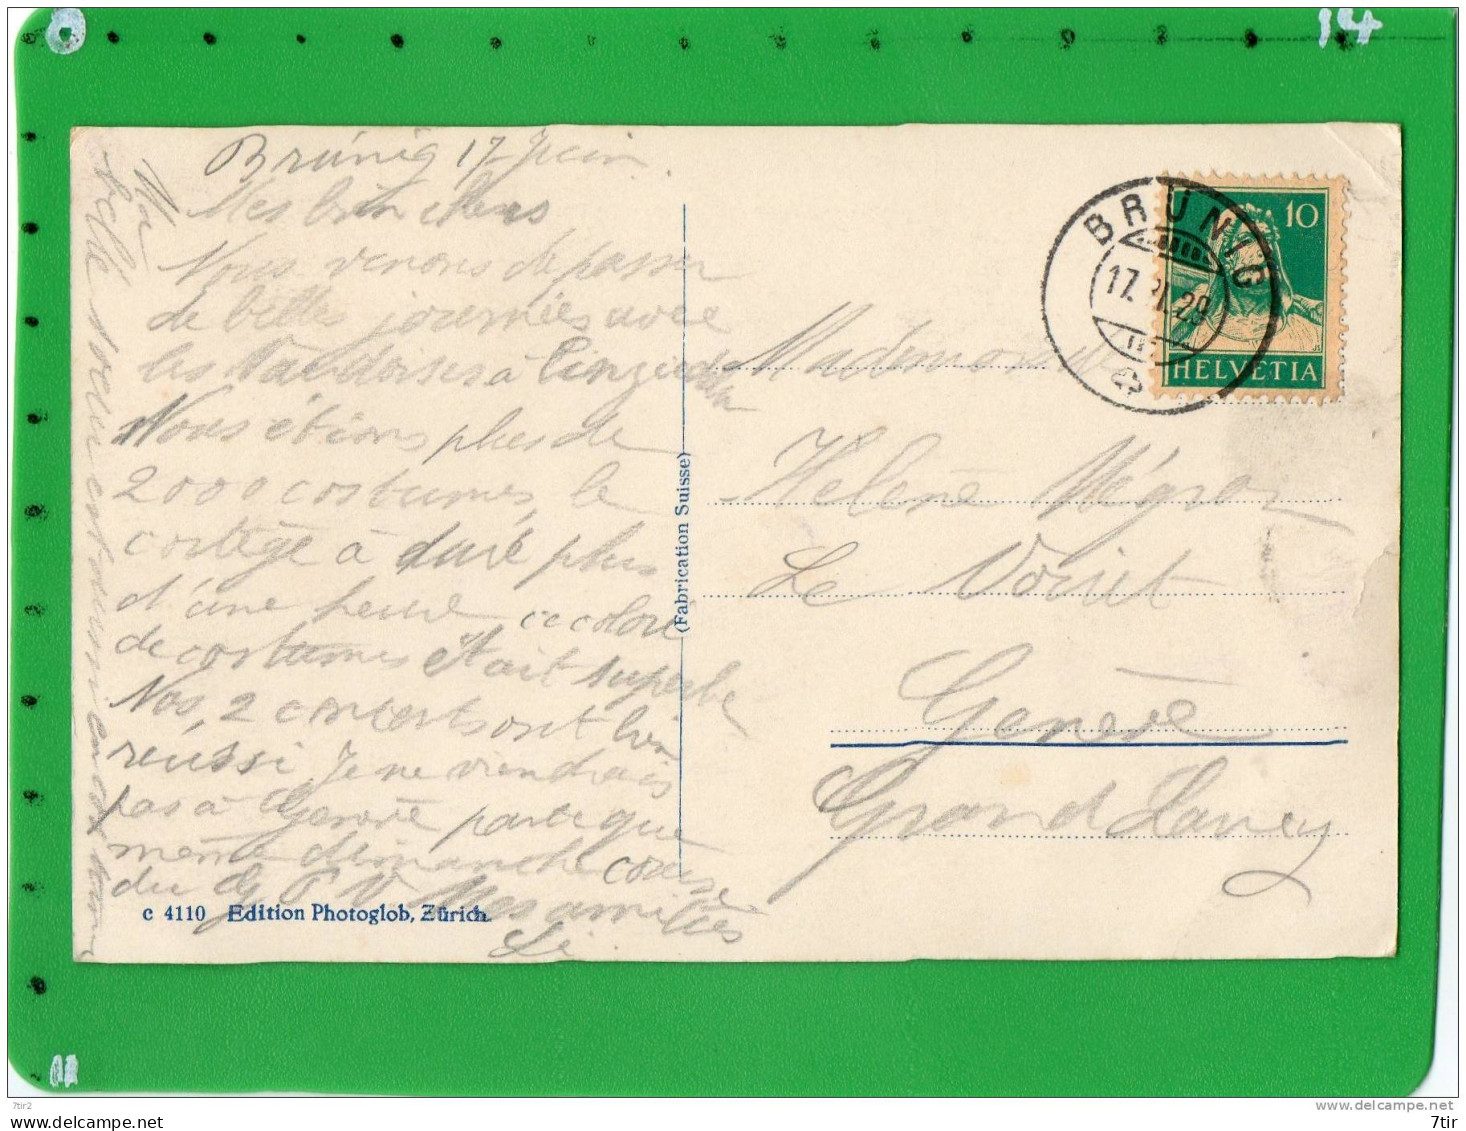 14
Brünig 17 Juin
Mes bien chers
Nous venons de passer
de belles journées avec
les Vaudoises à
Nous étions plus de
2000 costumes, le
cortège à duré plus
d'une heure
de costumes était superbe
Nos, 2 concerts ont bien
réussi Je ne viendrais
pas à Genève parce que
même dimanche course
du G P V Mes amitiés
Ma
belle soeur est
c 4110 Edition Photoglob, Zürich.
(Fabrication Suisse)
BRÜNIG
17.VI.29
10
HELVETIA
Mademoiselle
Helène Mégroz
Le Voiret
Genève
Grand Lancy
11
7tir2
www.delcampe.net
www.delcampe.net
7tir